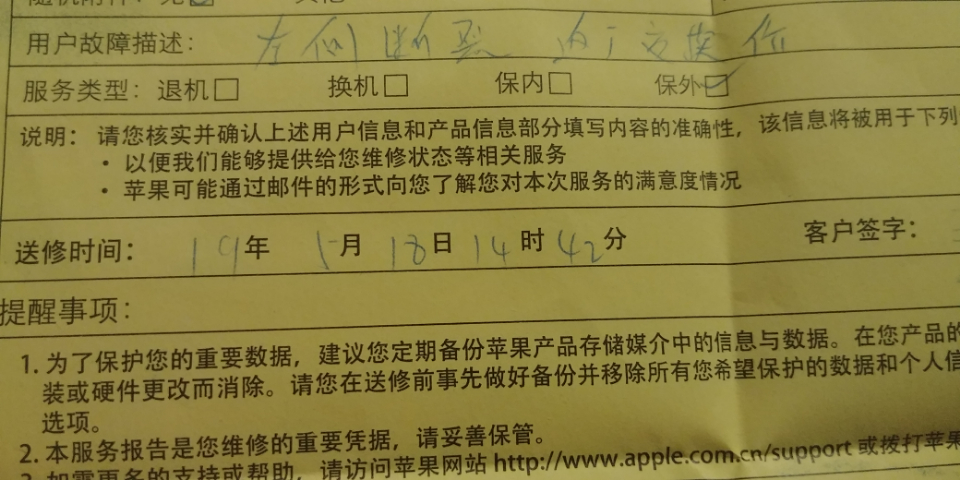 随机附件：无☑ 其他
用户故障描述：左侧断裂
服务类型：退机□ 换机□ 保内□ 保外☑
说明：请您核实并确认上述用户信息和产品信息部分填写内容的准确性，该信息将被用于下列
• 以便我们能够提供给您维修状态等相关服务
• 苹果可能通过邮件的形式向您了解您对本次服务的满意度情况
送修时间：19年5月18日14时42分 客户签字：
提醒事项：
1. 为了保护您的重要数据，建议您定期备份苹果产品存储媒介中的信息与数据。在您产品的
装或硬件更改而消除。请您在送修前事先做好备份并移除所有您希望保护的数据和个人信
选项。
2. 本服务报告是您维修的重要凭据，请妥善保管。
如需更多的支持或帮助，请访问苹果网站 http://www.apple.com.cn/support 或拨打苹果